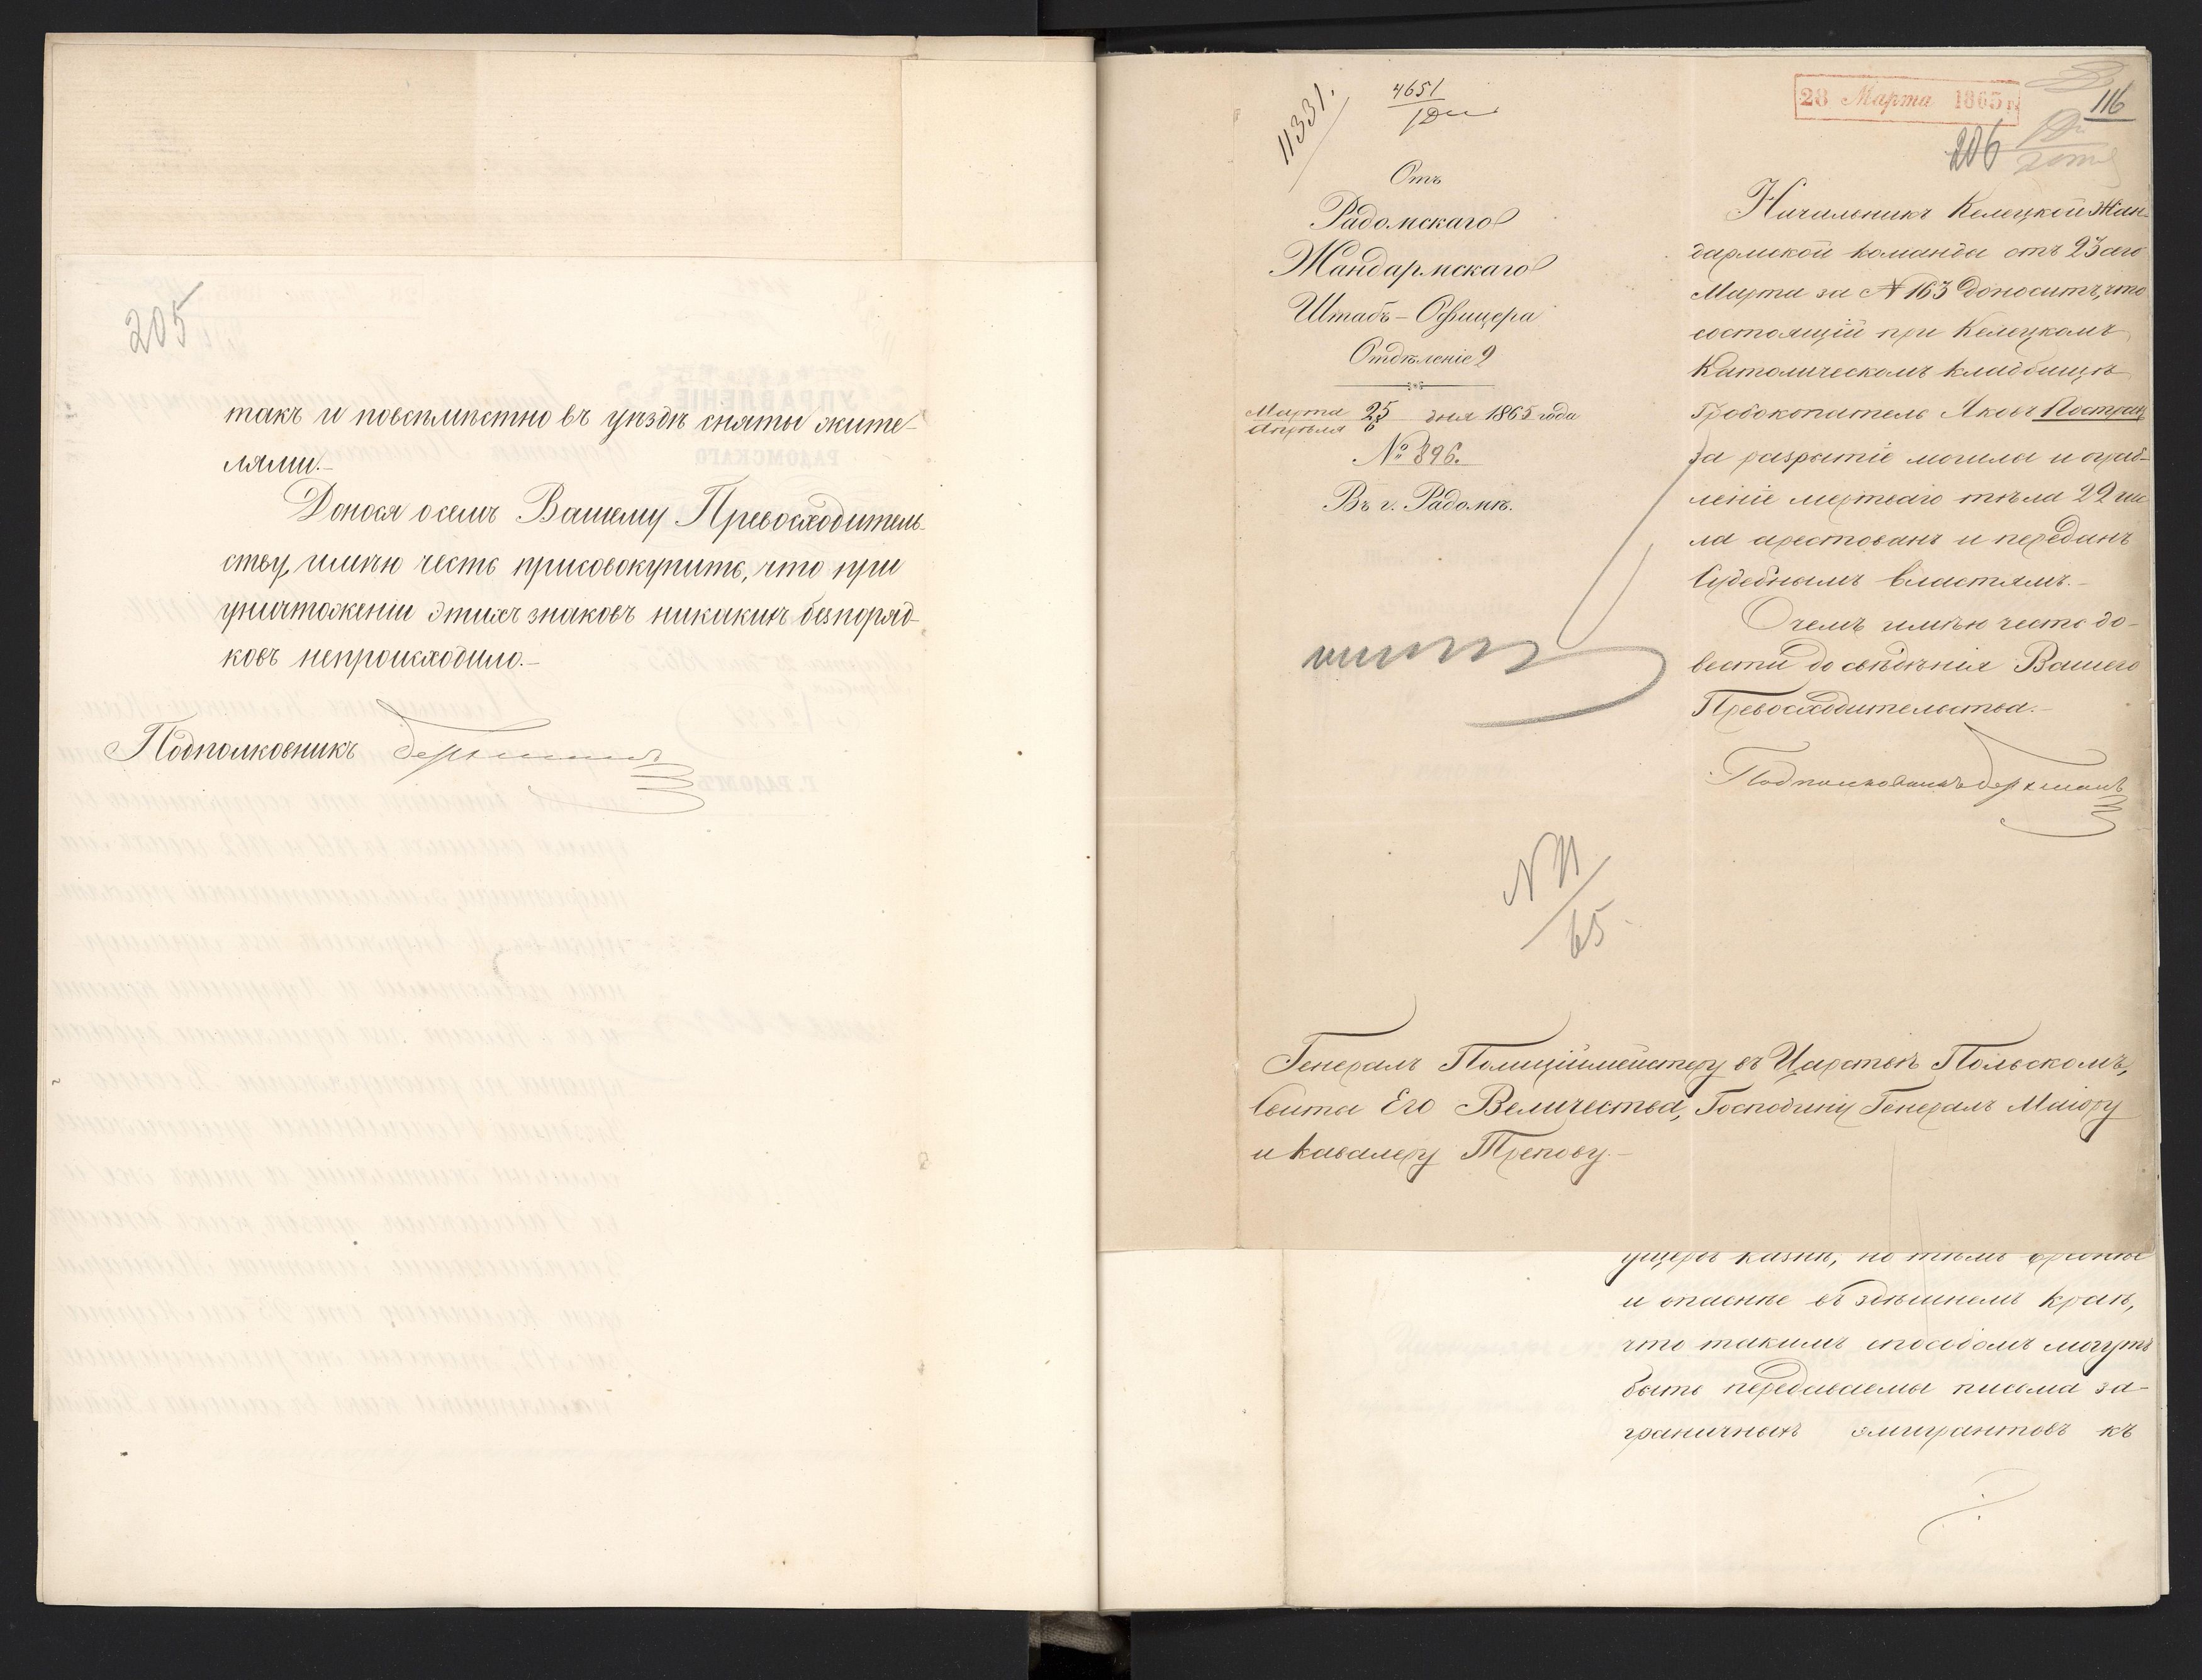 205
такъ и повсемѣстно въ уѣздѣ сняты жите-
лями.-
Донося о семъ Вашему Превосходитель-
ству, имѣю честь присовокупить, что при
уничтоженіи этихъ знаковъ никакихъ безпоряд-
ковъ непроисходило.-
Подполковникъ
11331.
4651
28 Марта 1865 г.
116
206
Отъ
Радомскаго
Жандармскаго
Штабъ-Офицера
Отдѣленіе 2
Марта 25 дня 1865 года
Апрѣля 6
№ 896.
Въ г. Радомѣ.
Начальникъ Келецкой Жан-
дармской команды отъ 23 сего
Марта за № 163 доноситъ, что
состоящій при Келецкомъ
Католическомъ кладбищѣ
Гробокопатель Яковъ
за разрытіе могилы и ограб-
леніе мертваго тѣла 22 чис
ла арестованъ и переданъ
Судебнымъ властямъ.-
О чемъ имѣю честь до-
вести до свѣдѣнія Вашего
Превосходительства.-
Подполковникъ
N 11
65
Генералъ Полиціймейстеру въ Царствѣ Польскомъ,
Свиты Его Величества, Господину Генералъ Маіору
и Кавалеру Трепову.-
ущербъ казнѣ, но тѣмъ
и опаснѣе въ здѣшнемъ краѣ,
что такимъ способомъ могутъ
быть передаваемы письма за-
граничныхъ эмигрантовъ къ